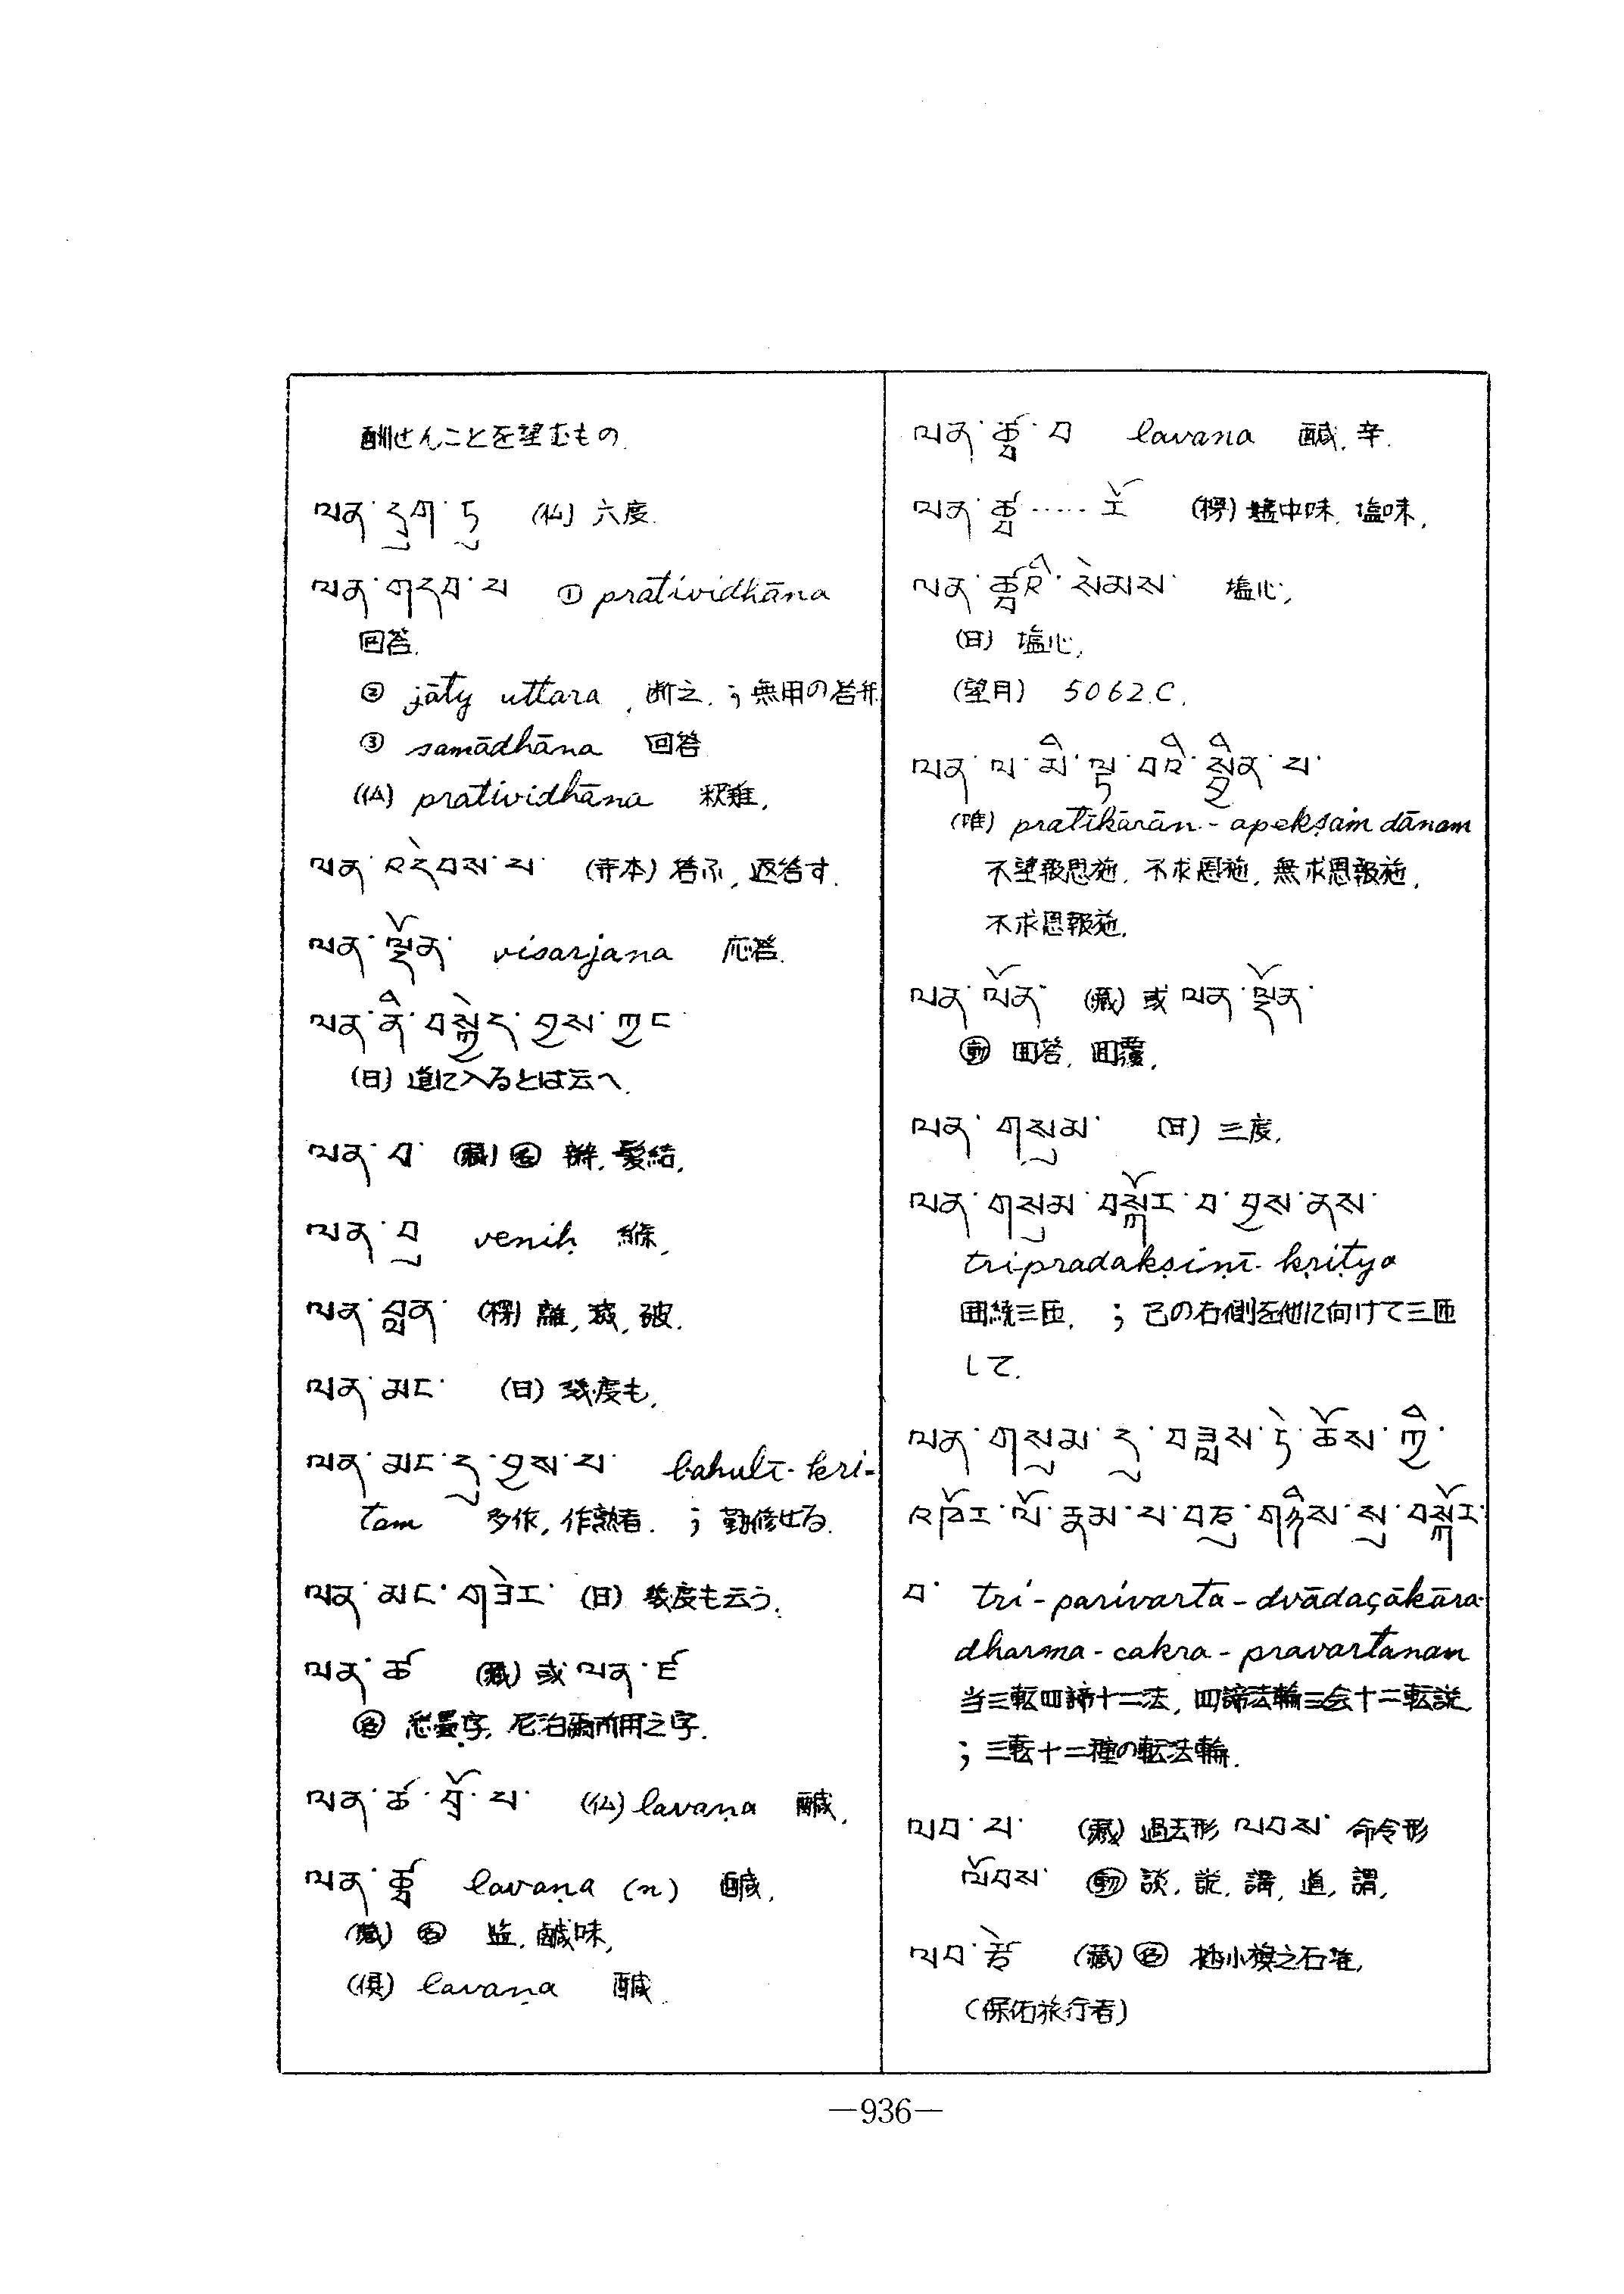 酬せんことを望むもの.
ལན་དྲུག་ཏུ (仏) 六度.
ལན་གདབ་པ ① pratividhāna
回答.
② jāty uttara , 断之. ; 無用の答弁
③ samādhāna 回答
pratividhāna 釈難,
ལན་འདེབས་པ་ 答ふ, 返答す.
ལན་ལྡོན་ visarjana 応答.
ལན་ནི་བསྐྱེད་བྱས་ཀྱང
(日) 道に入るとは云へ.
ལན་བ་ (蔵) 名 辮, 髪結,
ལན་བུ veniḥ 縧,
ལན་བླན (楞) 離, 滅, 破.
ལན་མང་ (日) 幾度も,
ལན་མང་དུ་བྱས་པ་ bahulī-kri-
tam 多作, 作熟者. ; 勤修せる.
ལན་མང་གཟེར་ (日) 幾度も云う.
ལན་ཚ (蔵) 或 ལན་ཛ
名 悉曇字, 尼泊爾所用之字.
ལན་ཚ་བྲོ་པ་ (仏) lavaṇa 鹹,
ལན་ཚྭ lavaṇa (n) 鹹,
(蔵) 名 塩, 鹹味,
(倶) lavaṇa 鹹.
ལན་ཚྭ་བ lavana 鹹, 辛.
ལན་ཚྭ་.....རོ (楞) 塩中味, 塩味,
ལན་ཚྭའི་སེམས་ 塩心,
(日) 塩心,
(望月) 5062.C,
ལན་ལ་མི་ལྟ་བའི་སྦྱིན་པ་
(唯) pratikārān-apekṣaṁ dānam
不望報恩施, 不求恩施, 無求恩報施,
不求恩報施,
ལན་ལོན་ (蔵) 或 ལན་ལྡོན་
動 回答, 回覆,
ལན་གསུམ་ (日) 三度,
ལན་གསུམ་བསྐོར་བ་བྱས་ནས་
tripradakṣiṇī-kṛitya
囲繞三匝, ; 己の右側を他に向けて三匝
して.
ལན་གསུམ་དུ་བཟླས་ཏེ་ཆོས་ཀྱི་
འཁོར་ལོ་རྣམ་པ་བཅུ་གཉིས་སུ་བསྐོར་
བ་ tri-parivarta-dvādaçākāra-
dharma-cakra-pravartanam
当三転四諦十二法, 四諦法輪三会十二転説,
; 三転十二種の転法輪.
ལབ་པ་ (蔵) 過去形 ལབས་ 命令形
ལོབས་ 動 談, 説, 講, 道, 謂,
ལབ་ཙེ (蔵) 名 挿小旗之石堆,
(保佑旅行者)
—936—